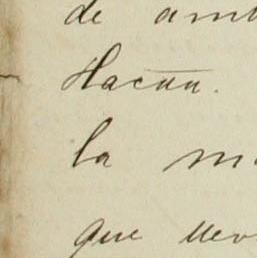 de amb
Hacūn.
la m
que llev